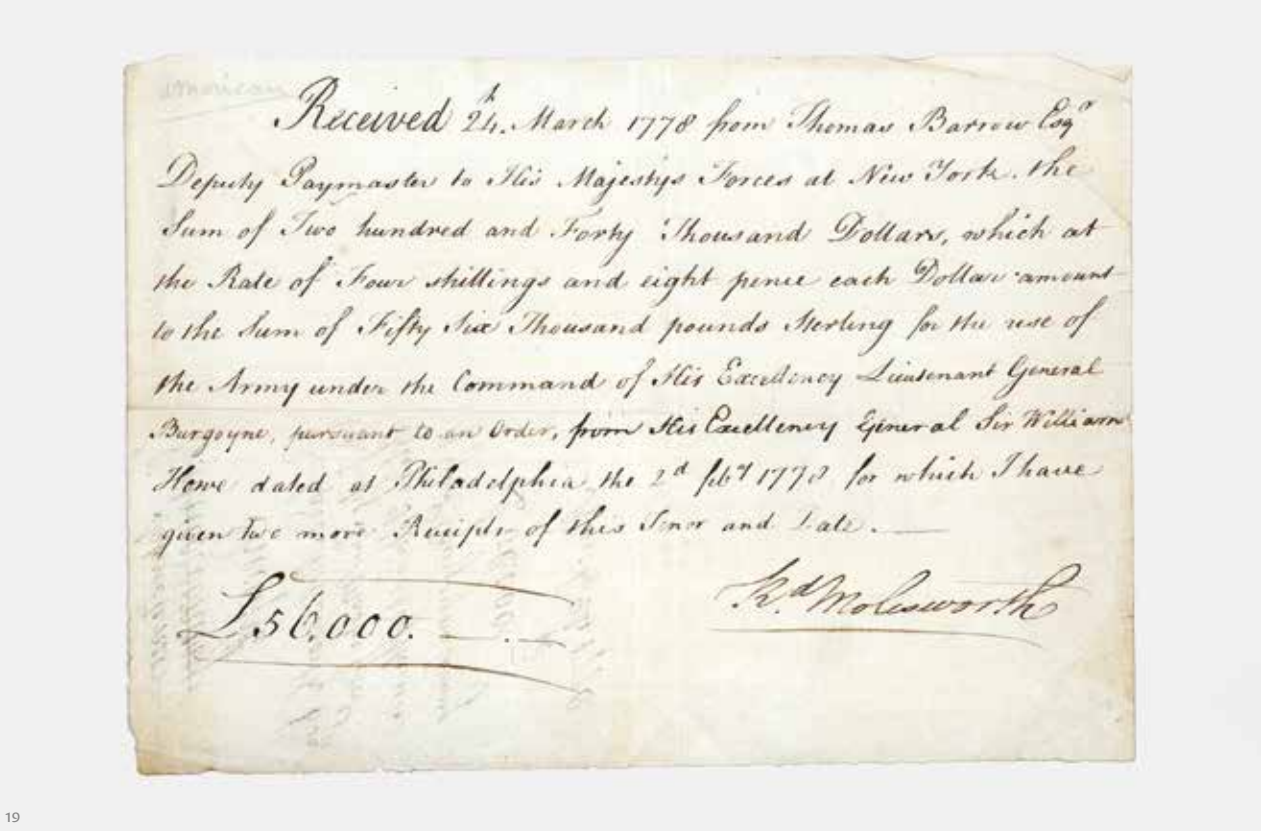 american
Received 24th. March 1778 from Thomas Barrow Esqr
Deputy Paymaster to His Majestys Forces at New York. the
Sum of Two hundred and Forty Thousand Dollars, which at
the Rate of Four shillings and eight pence each Dollar amount
to the Sum of Fifty Six Thousand pounds Sterling for the use of
the Army under the Command of His Excellency Lieutenant General
Burgoyne, pursuant to an Order, from His Excellency General Sir William
Howe dated at Philadelphia the 2d feby 1778 for which I have
given two more Receipts of this Tenor and Date.
£56,000.
Rd. Molesworth
19